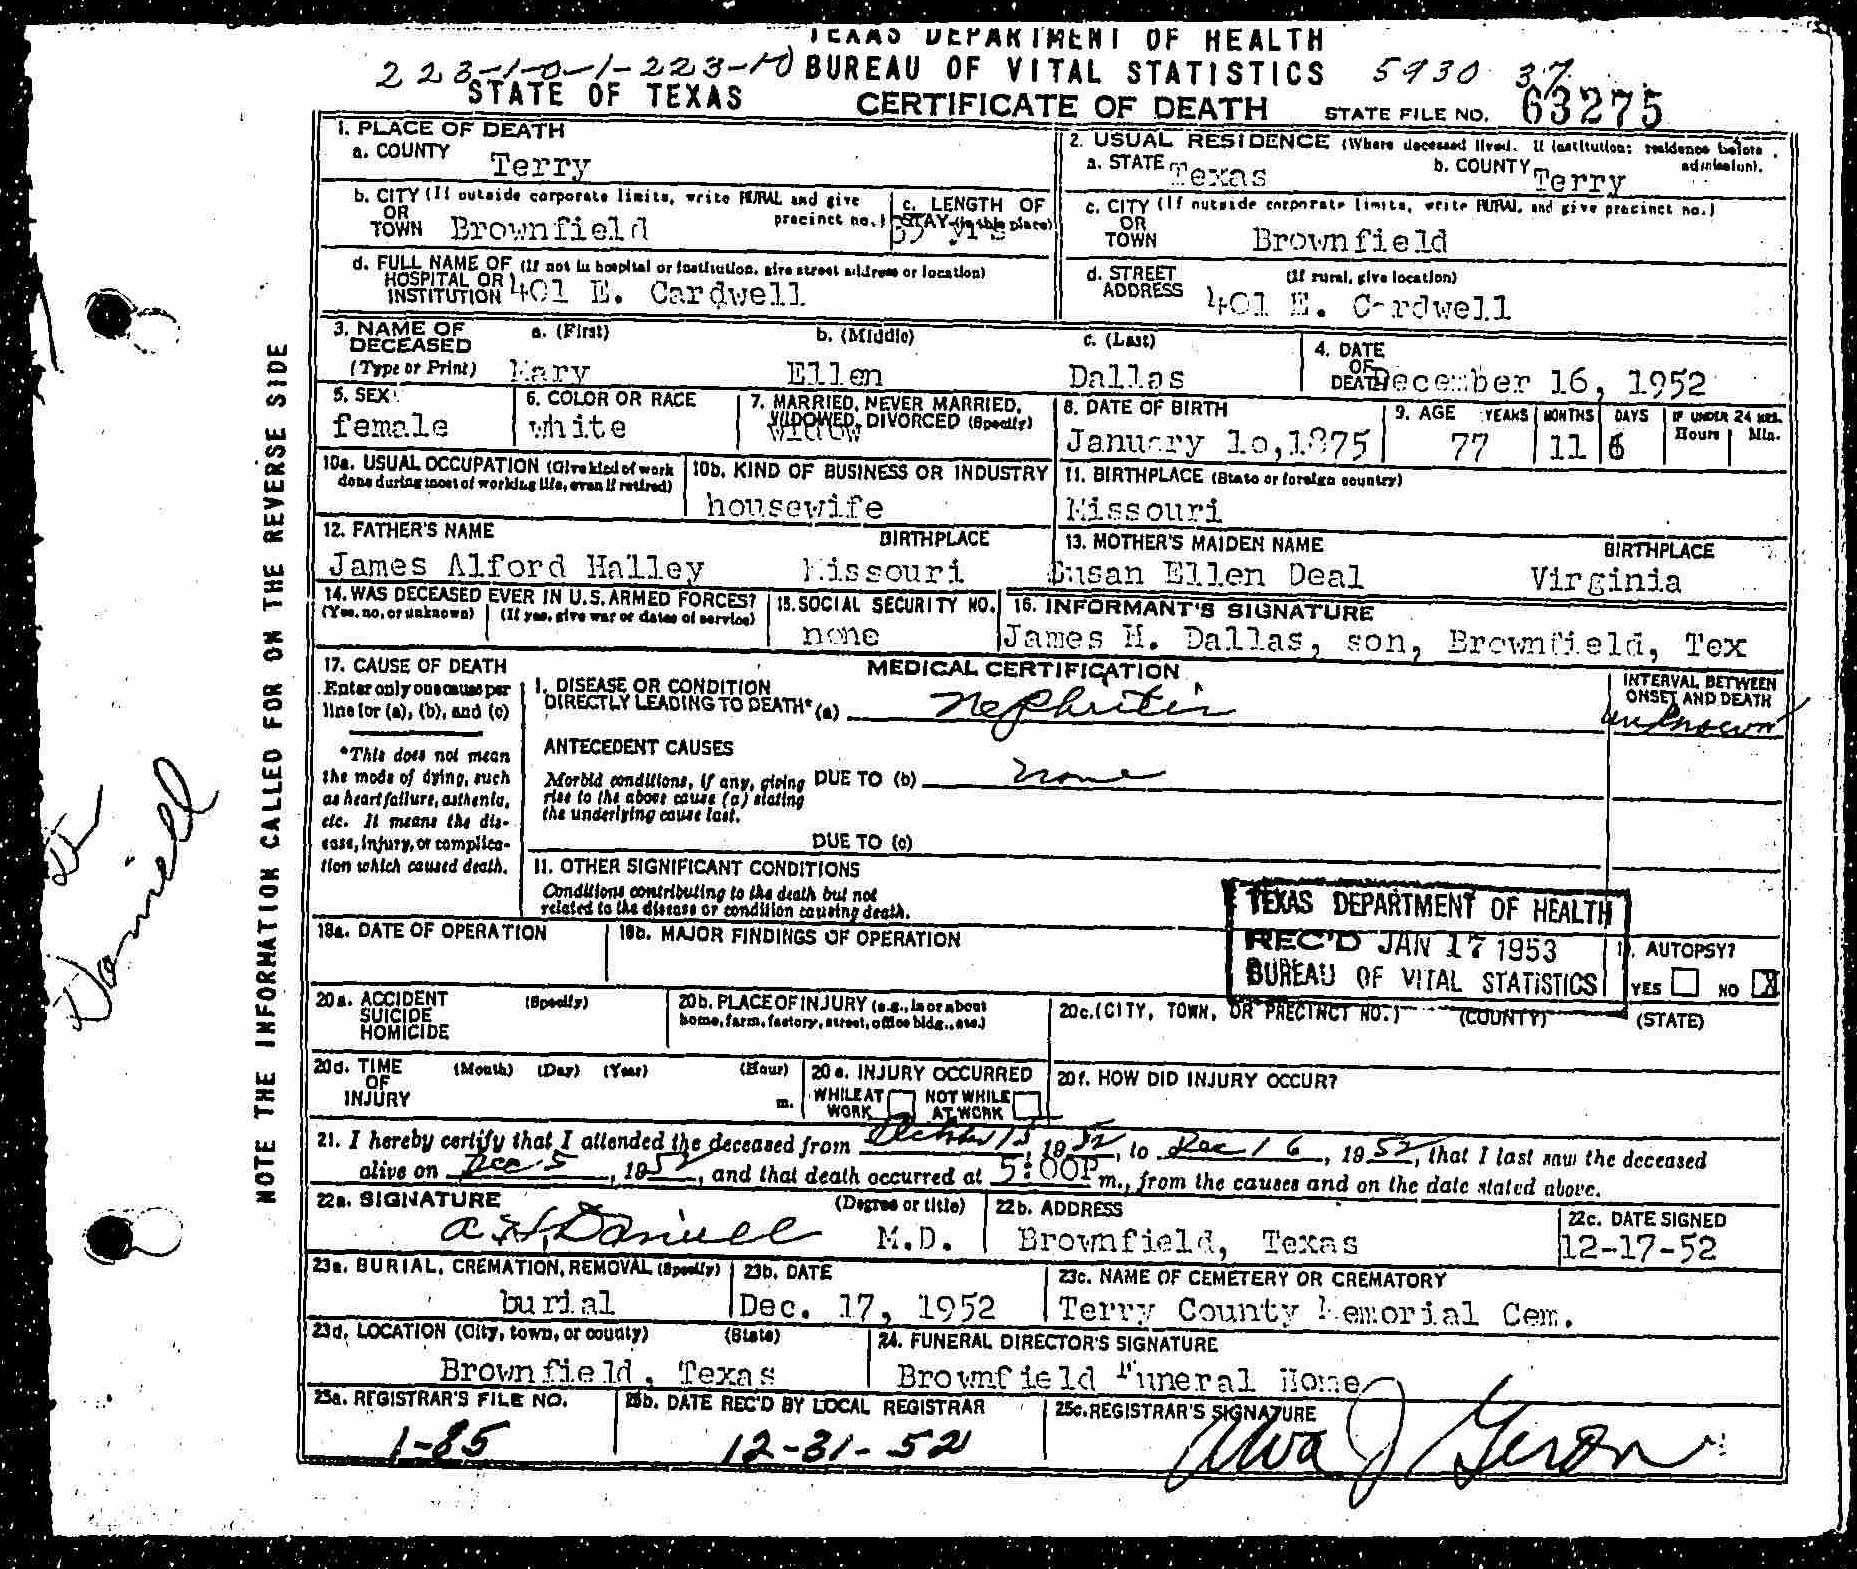 TEXAS DEPARTMENT OF HEALTH
223-1-0-1-223-10 BUREAU OF VITAL STATISTICS 5930 37
STATE OF TEXAS CERTIFICATE OF DEATH STATE FILE NO. 63275
1. PLACE OF DEATH
a. COUNTY Terry
2. USUAL RESIDENCE (Where deceased lived. If institution: residence before admission).
a. STATE Texas b. COUNTY Terry
b. CITY (If outside corporate limits, write RURAL and give precinct no.)
OR TOWN Brownfield
c. LENGTH OF STAY (in this place) yrs
c. CITY (If outside corporate limits, write RURAL and give precinct no.)
OR TOWN Brownfield
d. FULL NAME OF (If not in hospital or institution, give street address or location)
HOSPITAL OR INSTITUTION 401 E. Cardwell
d. STREET ADDRESS (If rural, give location)
401 E. Cardwell
3. NAME OF DECEASED (Type or Print) a. (First) b. (Middle) c. (Last)
Mary Ellen Dallas
4. DATE OF DEATH December 16, 1952
5. SEX female
6. COLOR OR RACE white
7. MARRIED, NEVER MARRIED, WIDOWED, DIVORCED (Specify) widow
8. DATE OF BIRTH January 10,1875
9. AGE YEARS MONTHS DAYS IF UNDER 24 HRS. Hours Min.
77 11 6
10a. USUAL OCCUPATION (Give kind of work done during most of working life, even if retired)
10b. KIND OF BUSINESS OR INDUSTRY
housewife
11. BIRTHPLACE (State or foreign country)
Missouri
12. FATHER'S NAME BIRTHPLACE
James Alford Halley Missouri
13. MOTHER'S MAIDEN NAME BIRTHPLACE
Susan Ellen Deal Virginia
14. WAS DECEASED EVER IN U.S. ARMED FORCES?
(Yes, no, or unknown) (If yes, give war or dates of service)
15. SOCIAL SECURITY NO.
none
16. INFORMANT'S SIGNATURE
James H. Dallas, son, Brownfield, Tex
17. CAUSE OF DEATH
Enter only one cause per line for (a), (b), and (c)
*This does not mean the mode of dying, such as heart failure, asthenia, etc. It means the disease, injury, or complication which caused death.
MEDICAL CERTIFICATION
INTERVAL BETWEEN ONSET AND DEATH
unknown
I. DISEASE OR CONDITION
DIRECTLY LEADING TO DEATH* (a) Nephritis
ANTECEDENT CAUSES
Morbid conditions, if any, giving rise to the above cause (a) stating the underlying cause last.
DUE TO (b) none
DUE TO (c)
II. OTHER SIGNIFICANT CONDITIONS
Conditions contributing to the death but not related to the disease or condition causing death.
TEXAS DEPARTMENT OF HEALTH
REC'D JAN 17 1953
BUREAU OF VITAL STATISTICS
18a. DATE OF OPERATION
18b. MAJOR FINDINGS OF OPERATION
AUTOPSY?
YES NO X
20a. ACCIDENT SUICIDE HOMICIDE (Specify)
20b. PLACE OF INJURY (e.g., in or about home, farm, factory, street, office bldg., etc.)
20c. (CITY, TOWN, OR PRECINCT NO.) (COUNTY) (STATE)
20d. TIME OF INJURY (Month) (Day) (Year) (Hour) m.
20e. INJURY OCCURRED
WHILE AT WORK NOT WHILE AT WORK
20f. HOW DID INJURY OCCUR?
21. I hereby certify that I attended the deceased from 1952, to Dec 16, 1952, that I last saw the deceased
alive on Dec 5, 1952, and that death occurred at 5:00P m., from the causes and on the date stated above.
22a. SIGNATURE (Degree or title)
A.H. Daniell M.D.
22b. ADDRESS
Brownfield, Texas
22c. DATE SIGNED
12-17-52
23a. BURIAL, CREMATION, REMOVAL (Specify)
burial
23b. DATE
Dec. 17, 1952
23c. NAME OF CEMETERY OR CREMATORY
Terry County Memorial Cem.
23d. LOCATION (City, town, or county) (State)
Brownfield, Texas
24. FUNERAL DIRECTOR'S SIGNATURE
Brownfield Funeral Home
25a. REGISTRAR'S FILE NO.
1-85
25b. DATE REC'D BY LOCAL REGISTRAR
12-31-52
25c. REGISTRAR'S SIGNATURE
Alva J Geron
NOTE THE INFORMATION CALLED FOR ON THE REVERSE SIDE
Daniell